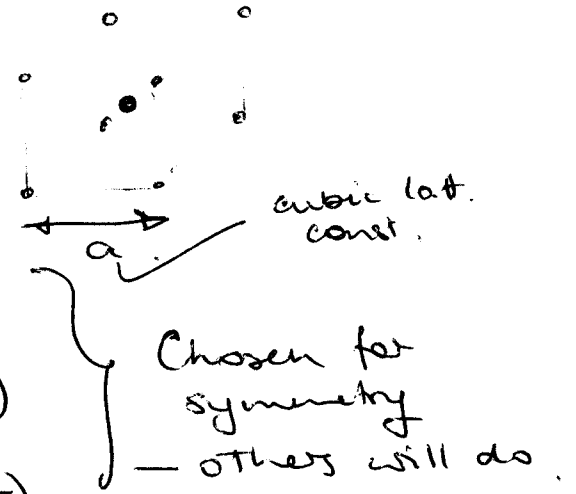 cubic latt.
const.
a
Chosen for
symmetry
— others will do.